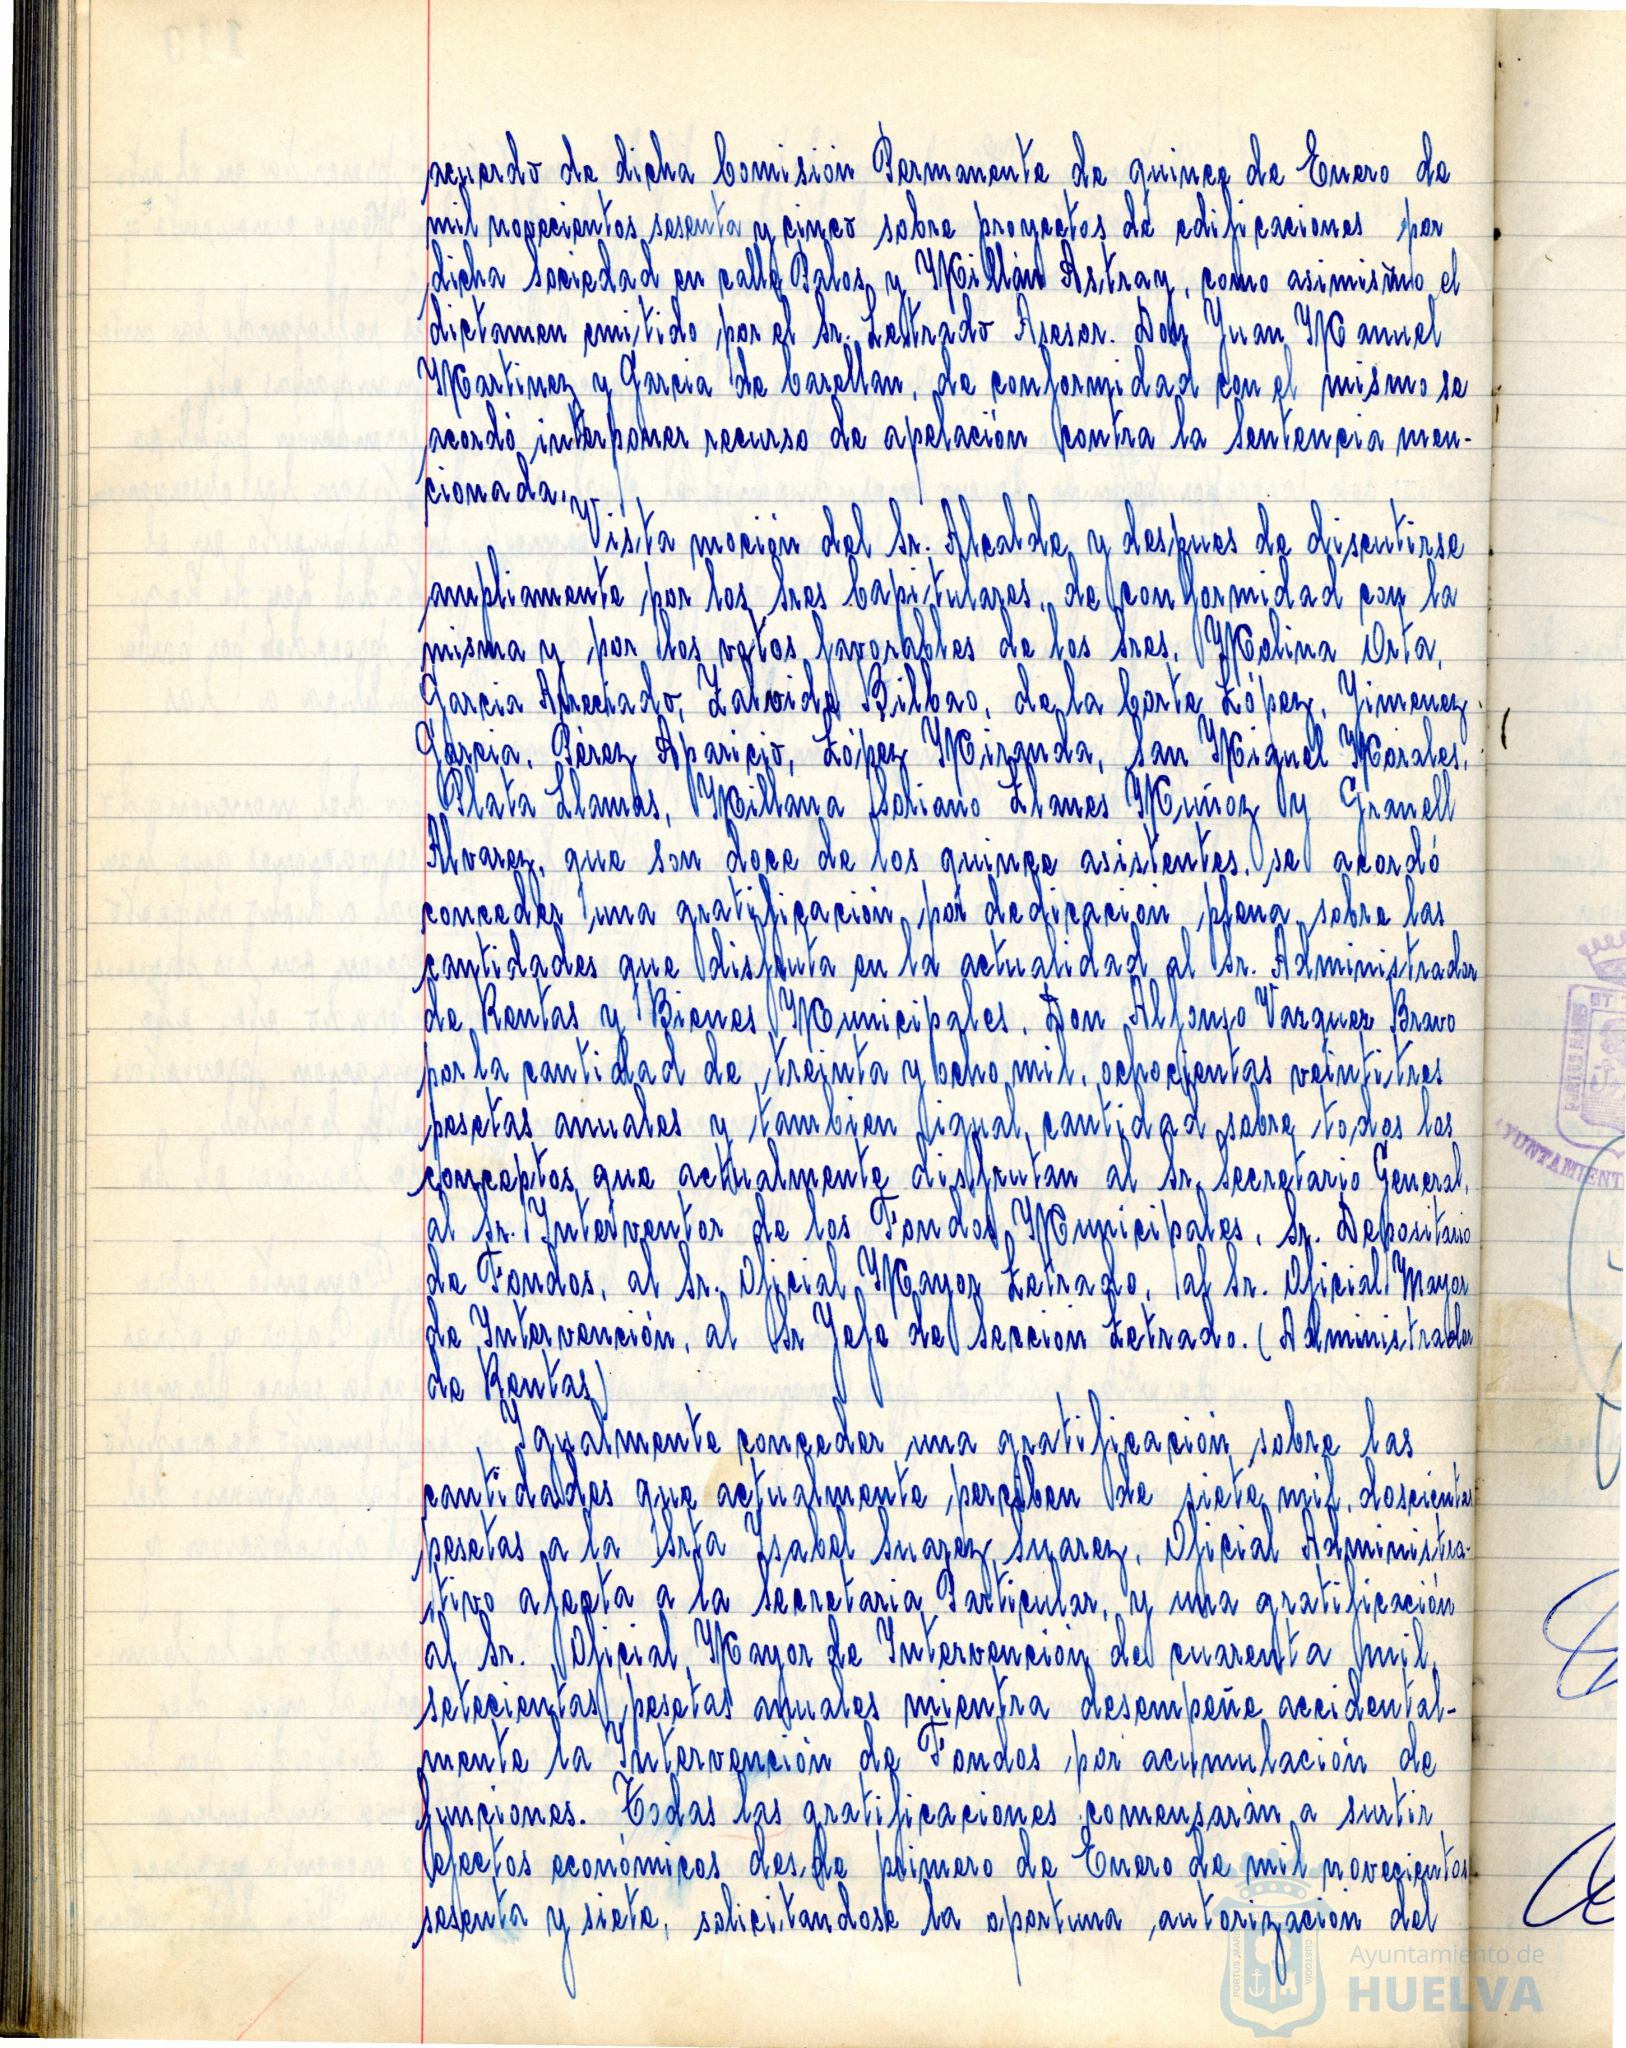 acuerdo de dicha Comisión Permanente de quince de Enero de
mil novecientos sesenta y cinco sobre proyectos de edificaciones por
dicha Sociedad en calle Palos y Millán Astray, como asimismo el
dictamen emitido por el Sr. Letrado Asesor. Don Juan Manuel
Martinez y Garcia de Carellan, de conformidad con el mismo se
acordó interponer recurso de apelación contra la sentencia men-
cionada.
Vista moción del Sr. Alcalde y despues de discutirse
ampliamente por los Sres Capitulares, de conformidad con la
misma y por los votos favorables de los Sres. Molina Orta,
Garcia Zalvide Bilbao, de la Corte López, Jimenez
Garcia, Pérez Aparicio, López Miranda, San Miguel Morales,
Plata Llamas, Millana Soriano Llanes Muñoz y Granell
Alvarez, que son doce de los quince asistentes, se acordó
conceder una gratificación por dedicación plena sobre las
cantidades que disfruta en la actualidad al Sr. Administrador
de Rentas y Bienes Municipales, Don Alfonso Vazquez Bravo
por la cantidad de treinta y ocho mil, ochocientas veintitres
pesetas anuales y tambien igual cantidad sobre todos los
conceptos que actualmente disfrutan al Sr. Secretario General,
al Sr. Interventor de los Fondos Municipales, Sr. Depositario
de Fondos, al Sr. Oficial Mayor Letrado, al Sr. Oficial Mayor
de Intervención, al Sr Jefe de Sección Letrado. (Administrador
de Rentas)
Igualmente conceder una gratificación sobre las
cantidades que actualmente perciben de siete mil, doscientas
pesetas a la Srta Isabel Suarez Suarez, Oficial Administra-
tivo afecta a la Secretaria Particular, y una gratificación
al Sr. Oficial Mayor de Intervención de cuarenta mil,
setecientas pesetas anuales mientra desempeñe accidental-
mente la Intervención de Fondos por acumulación de
funciones. Todas las gratificaciones comensarán a surtir
efectos económicos desde primero de Enero de mil novecientos
sesenta y siete, solicitandose la oportuna autorización del
Ayuntamiento de
HUELVA